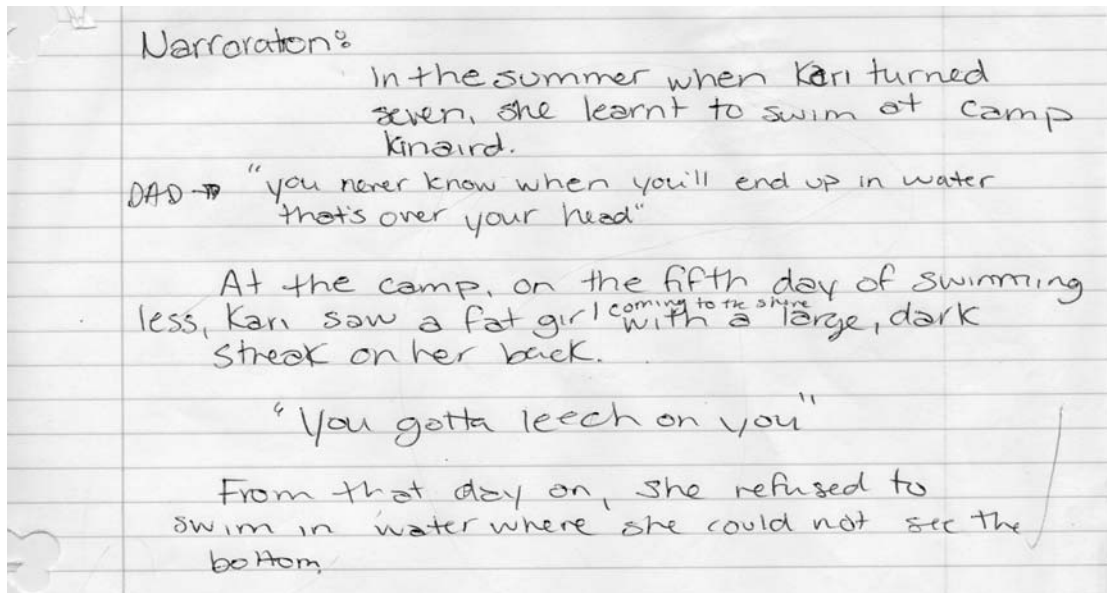 Narroraton:
In the summer when Kari turned
seven, she learnt to swim at camp
Kinaird.
DAD → "you never know when you'll end up in water
that's over your head"
At the camp, on the fifth day of swimming
less, Kari saw a fat girl coming to the shore with a large, dark
streak on her back.
"You gotta leech on you"
From that day on, she refused to
swim in water where she could not see the
bottom.